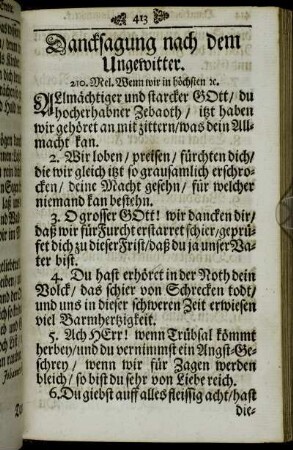 413
Dancksagung nach dem
Ungewitter.
210. Mel. Wenn wir in höchsten ꝛc.
ALlmächtiger und starcker GOtt / du
hocherhabner Zebaoth / itzt haben
wir gehöret an mit zittern / was dein All-
macht kan.
2. Wir loben / preisen / fürchten dich /
die wir gleich itzt so grausamlich erschro-
cken / deine Macht gesehn / für welcher
niemand kan bestehn.
3. O grosser GOtt! wir dancken dir /
daß wir für Furcht erstarret schier / geprü-
fet dich zu dieser Frist / daß du ja unser Va-
ter bist.
4. Du hast erhöret in der Noth dein
Volck / das schier von Schrecken todt /
und uns in dieser schweren Zeit erwiesen
viel Barmhertzigkeit.
5. Ach HErr! wenn Trübsal kömmt
herbey / und du vernimmst ein Angst-Ge-
schrey / wenn wir für Zagen werden
bleich / so bist du sehr von Liebe reich.
6. Du giebst auff alles fleissig acht / hast
die-